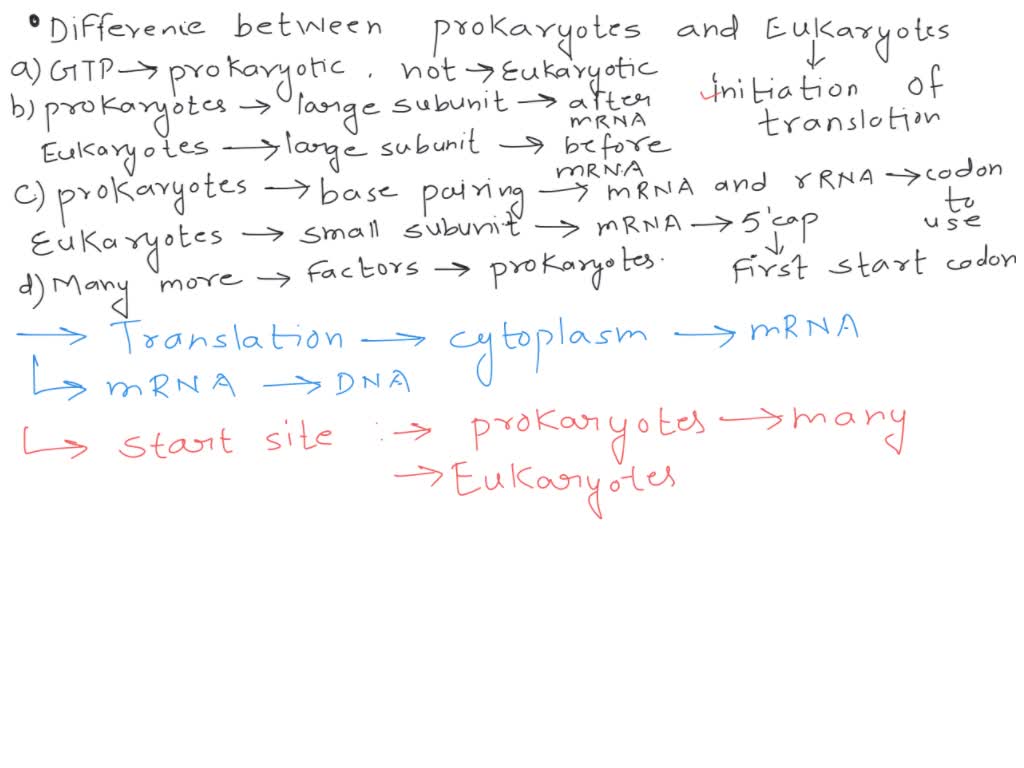 • Differenie between prokaryotes and Eukaryotes
↓
a) GTP → prokaryotic, not → Eukaryotic
initiation of translation
b) prokaryotes → large subunit → after mRNA
Eukaryotes → large subunit → before mRNA
c) prokaryotes → base pairing → mRNA and rRNA → codon to use
Eukaryotes → small subunit → mRNA → 5'cap
↓
First start codon
d) Many more → Factors → prokaryotes.
→ Translation → cytoplasm → mRNA
↳ mRNA → DNA
↳ start site : → prokaryotes → many
→ Eukaryotes